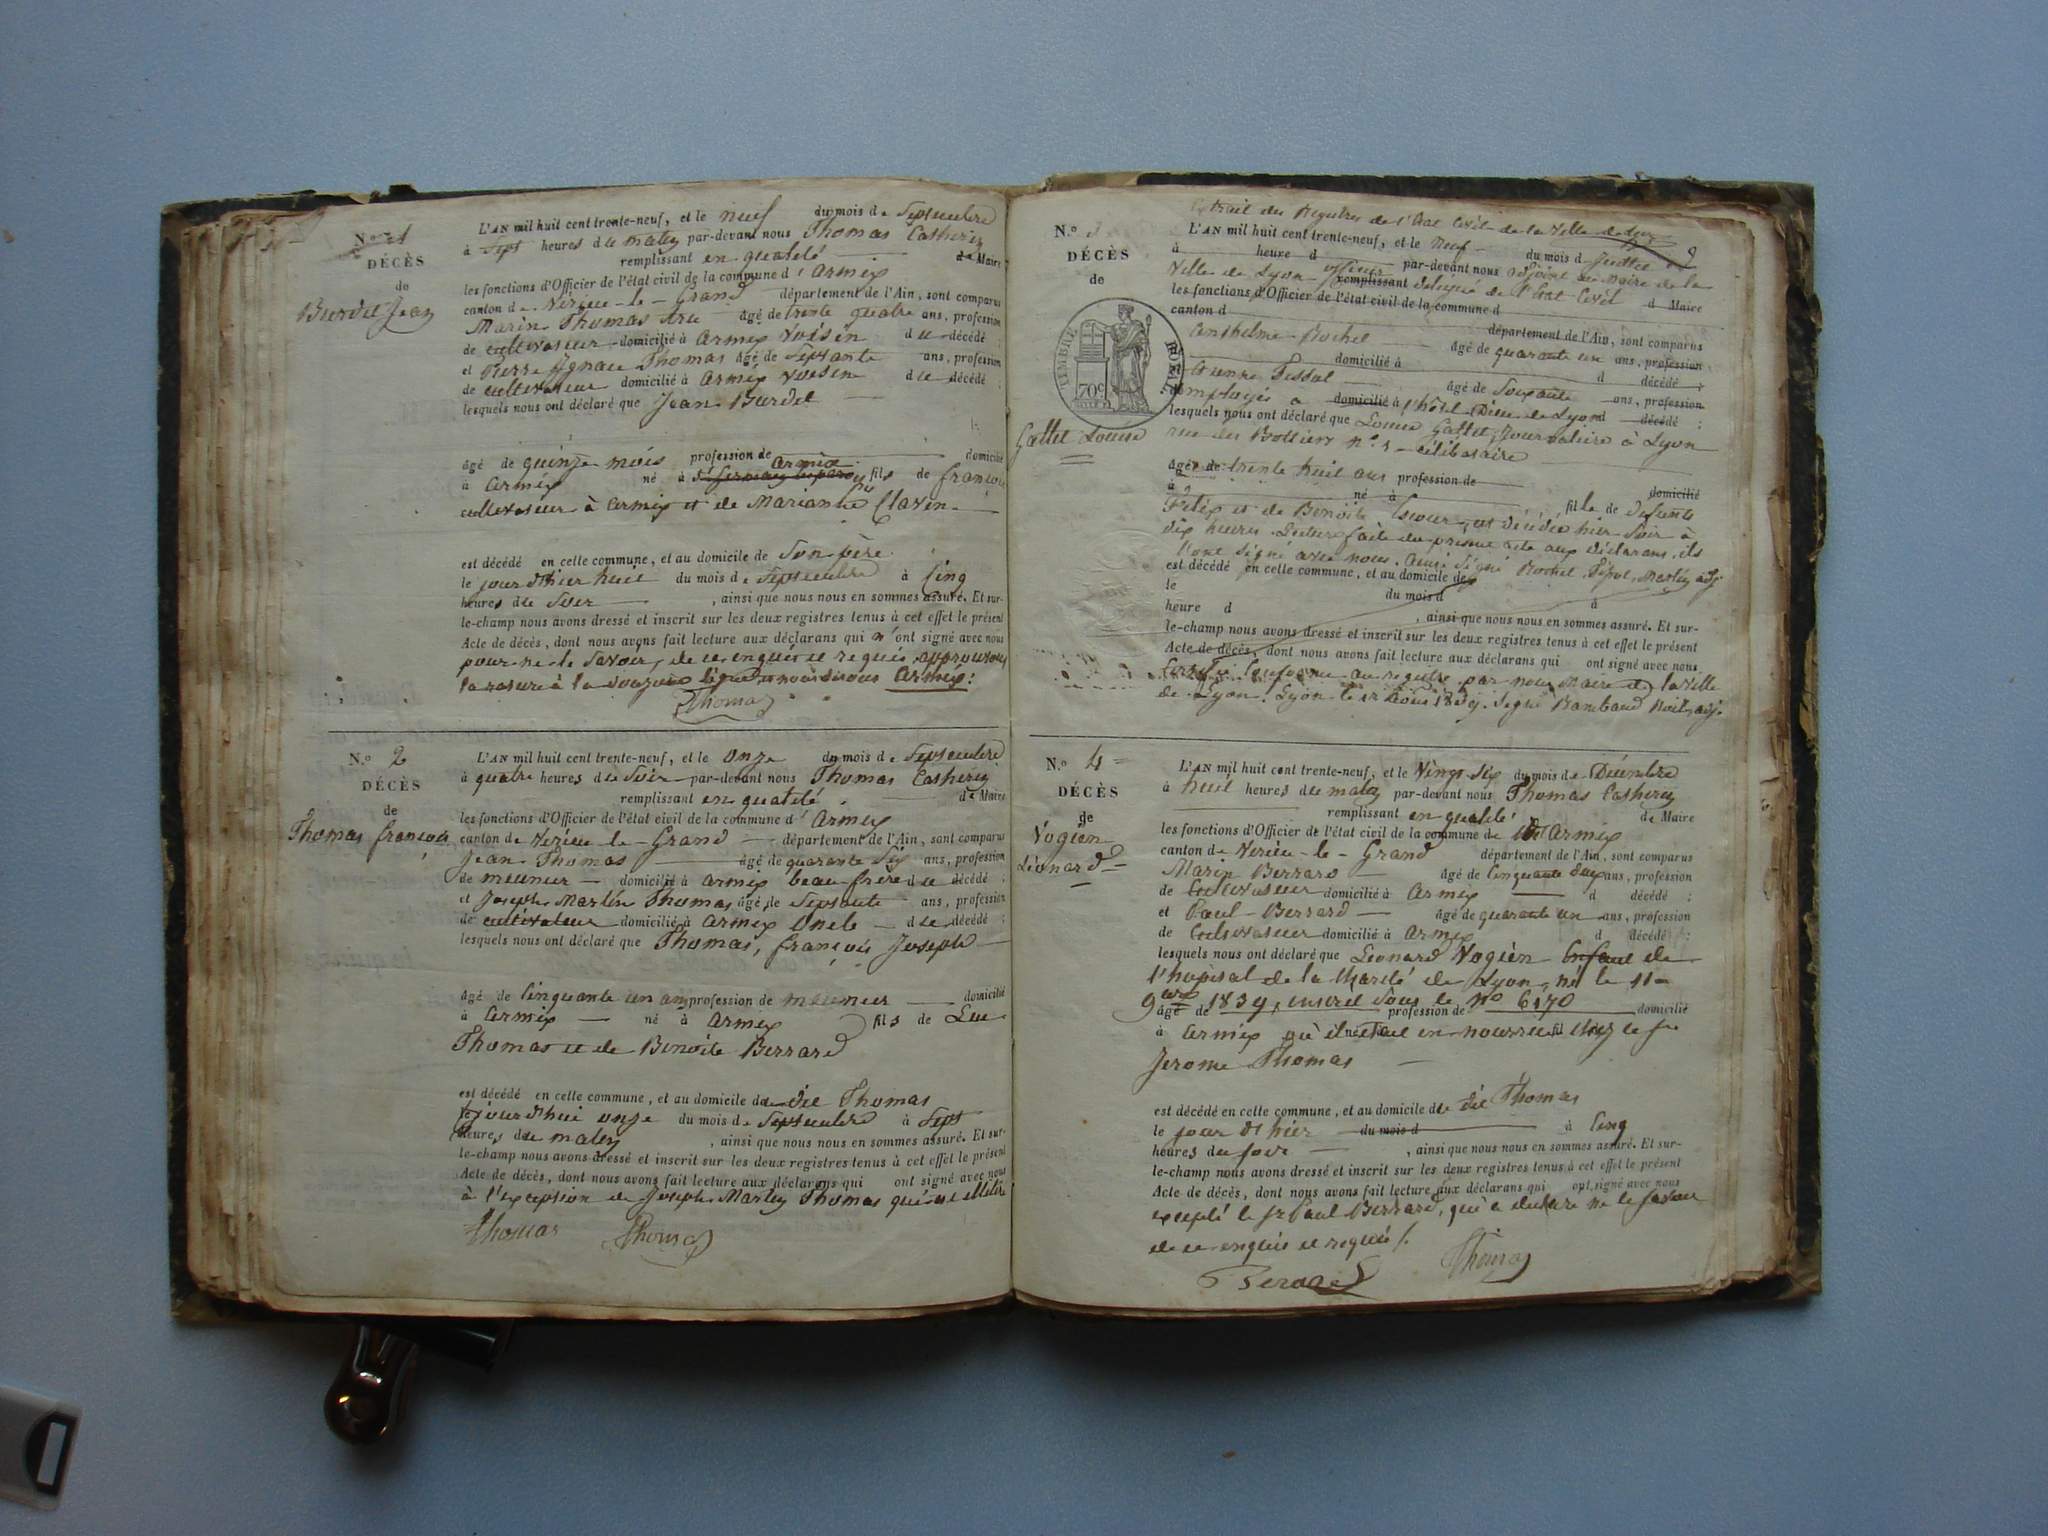 N.o 1
DÉCÈS
de
Burdet Jean
L'AN mil huit cent trente-neuf, et le neuf du mois de Septembre
à Sept heures du matin par-devant nous Thomas Catherin
remplissant en qualité de Maire
les fonctions d'Officier de l'état civil de la commune d'Armix
canton de Virieu-le-Grand département de l'Ain, sont comparus
Marin Thomas âgé de trente quatre ans, profession
de cultivateur domicilié à Armix voisin du décédé ;
et Pierre Ignace Thomas âgé de Septante ans, profession
de cultivateur domicilié à Armix voisin du décédé ;
lesquels nous ont déclaré que Jean Burdet
âgé de quinze mois profession de domicilié
Armix
à Armix né à fils de françois
cultivateur à Armix et de Marianne Clavin
est décédé en cette commune, et au domicile de Son père
le jour d'hier huit du mois de Septembre à Cinq
heures du Soir , ainsi que nous nous en sommes assuré. Et sur-
le-champ nous avons dressé et inscrit sur les deux registres tenus à cet effet le présent
Acte de décès, dont nous avons fait lecture aux déclarans qui n'ont signé avec nous
pour ne le Savoir, de ce enquis et requis, approuvons
la rature à la Armix :
Thomas
N.o 2
DÉCÈS
de
Thomas françois
L'AN mil huit cent trente-neuf, et le Onze du mois de Septembre
à quatre heures du Soir par-devant nous Thomas Catherin
remplissant en qualité de Maire
les fonctions d'Officier de l'état civil de la commune d'Armix
canton de Virieu-le-Grand département de l'Ain, sont comparus
Jean Thomas âgé de quarante Six ans, profession
de meunier domicilié à Armix beau-frère du décédé ;
et Joseph Martin Thomas âgé de Septante ans, profession
de cultivateur domicilié à Armix Oncle du décédé ;
lesquels nous ont déclaré que Thomas, françois Joseph
âgé de Cinquante un ans profession de meunier domicilié
à Armix né à Armix fils de Luc
Thomas et de Benoite Berrard
est décédé en cette commune, et au domicile du dit Thomas
le jourd'hui onze du mois de Septembre à Sept
heures du matin , ainsi que nous nous en sommes assuré. Et sur-
le-champ nous avons dressé et inscrit sur les deux registres tenus à cet effet le présent
Acte de décès, dont nous avons fait lecture aux déclarans qui ont signé avec nous
à l'exception de Joseph Martin Thomas qui est illitéré
Thomas Thomas
N.o 3
DÉCÈS
de
TIMBRE ROYAL
70c
Gattet Louise
Extrait des Registres de l'Etat Civil de la ville de Lyon
L'AN mil huit cent trente-neuf, et le Neuf du mois d Juillet
à heure d par-devant nous adjoint au Maire de la
Ville de Lyon officier remplissant délégué de l'Etat Civil d Maire
les fonctions d'Officier de l'état civil de la commune d
canton d département de l'Ain, sont comparus
Anthelme Rochel âgé de quarante un ans, profession
domicilié à d décédé ;
âgé de Soixante ans, profession
employés a domicilié à l'hôtel Dieu de Lyon d décédé ;
lesquels nous ont déclaré que Louise Gattet, Journalière à Lyon
rue des n.o 5 célibataire
âgée de trente huit ans profession de
à né à fille de défunts domicilié
Félix et de Benoite est décédée hier Soir à
dix heures. Lecture faite du présent acte aux déclarans, ils
l'ont Signé avec nous. Ainsi Signé Rochel, Martin adj.
est décédé en cette commune, et au domicile de
le du mois d à
heure d , ainsi que nous nous en sommes assuré. Et sur-
le-champ nous avons dressé et inscrit sur les deux registres tenus à cet effet le présent
Acte de décès, dont nous avons fait lecture aux déclarans qui ont signé avec nous
Certifié Conforme au registre par nous Maire de la Ville
de Lyon. Lyon le 12 Août 1839. Signé adj.
N.o 4
DÉCÈS
de
Vogien
Léonard
L'AN mil huit cent trente-neuf, et le Vingt Six du mois de Décembre
à huit heures du matin par-devant nous Thomas Catherin
remplissant en qualité de Maire
les fonctions d'Officier de l'état civil de la commune de Armix
canton de Virieu-le-Grand département de l'Ain, sont comparus
Marin Berrard âgé de Cinquante deux ans, profession
de Cultivateur domicilié à Armix d décédé ;
et Paul Berrard âgé de quarante un ans, profession
de Cultivateur domicilié à Armix d décédé ;
lesquels nous ont déclaré que Léonard Vogien Enfant de
l'hopital de la Charité de Lyon, né le 11
9bre 1839, inscrit Sous le No 6170
âgé de profession de domicilié
à Armix où il était en nourrice fil chez le Sr
Jerome Thomas
est décédé en cette commune, et au domicile du dit Thomas
le jour d'hier du mois d à Cinq
heures du Soir , ainsi que nous nous en sommes assuré. Et sur-
le-champ nous avons dressé et inscrit sur les deux registres tenus à cet effet le présent
Acte de décès, dont nous avons fait lecture aux déclarans qui ont signé avec nous
excepté le Sr Paul Berrard, qui a déclaré ne le Savoir
de ce enquis et requis /.
Berard Thomas